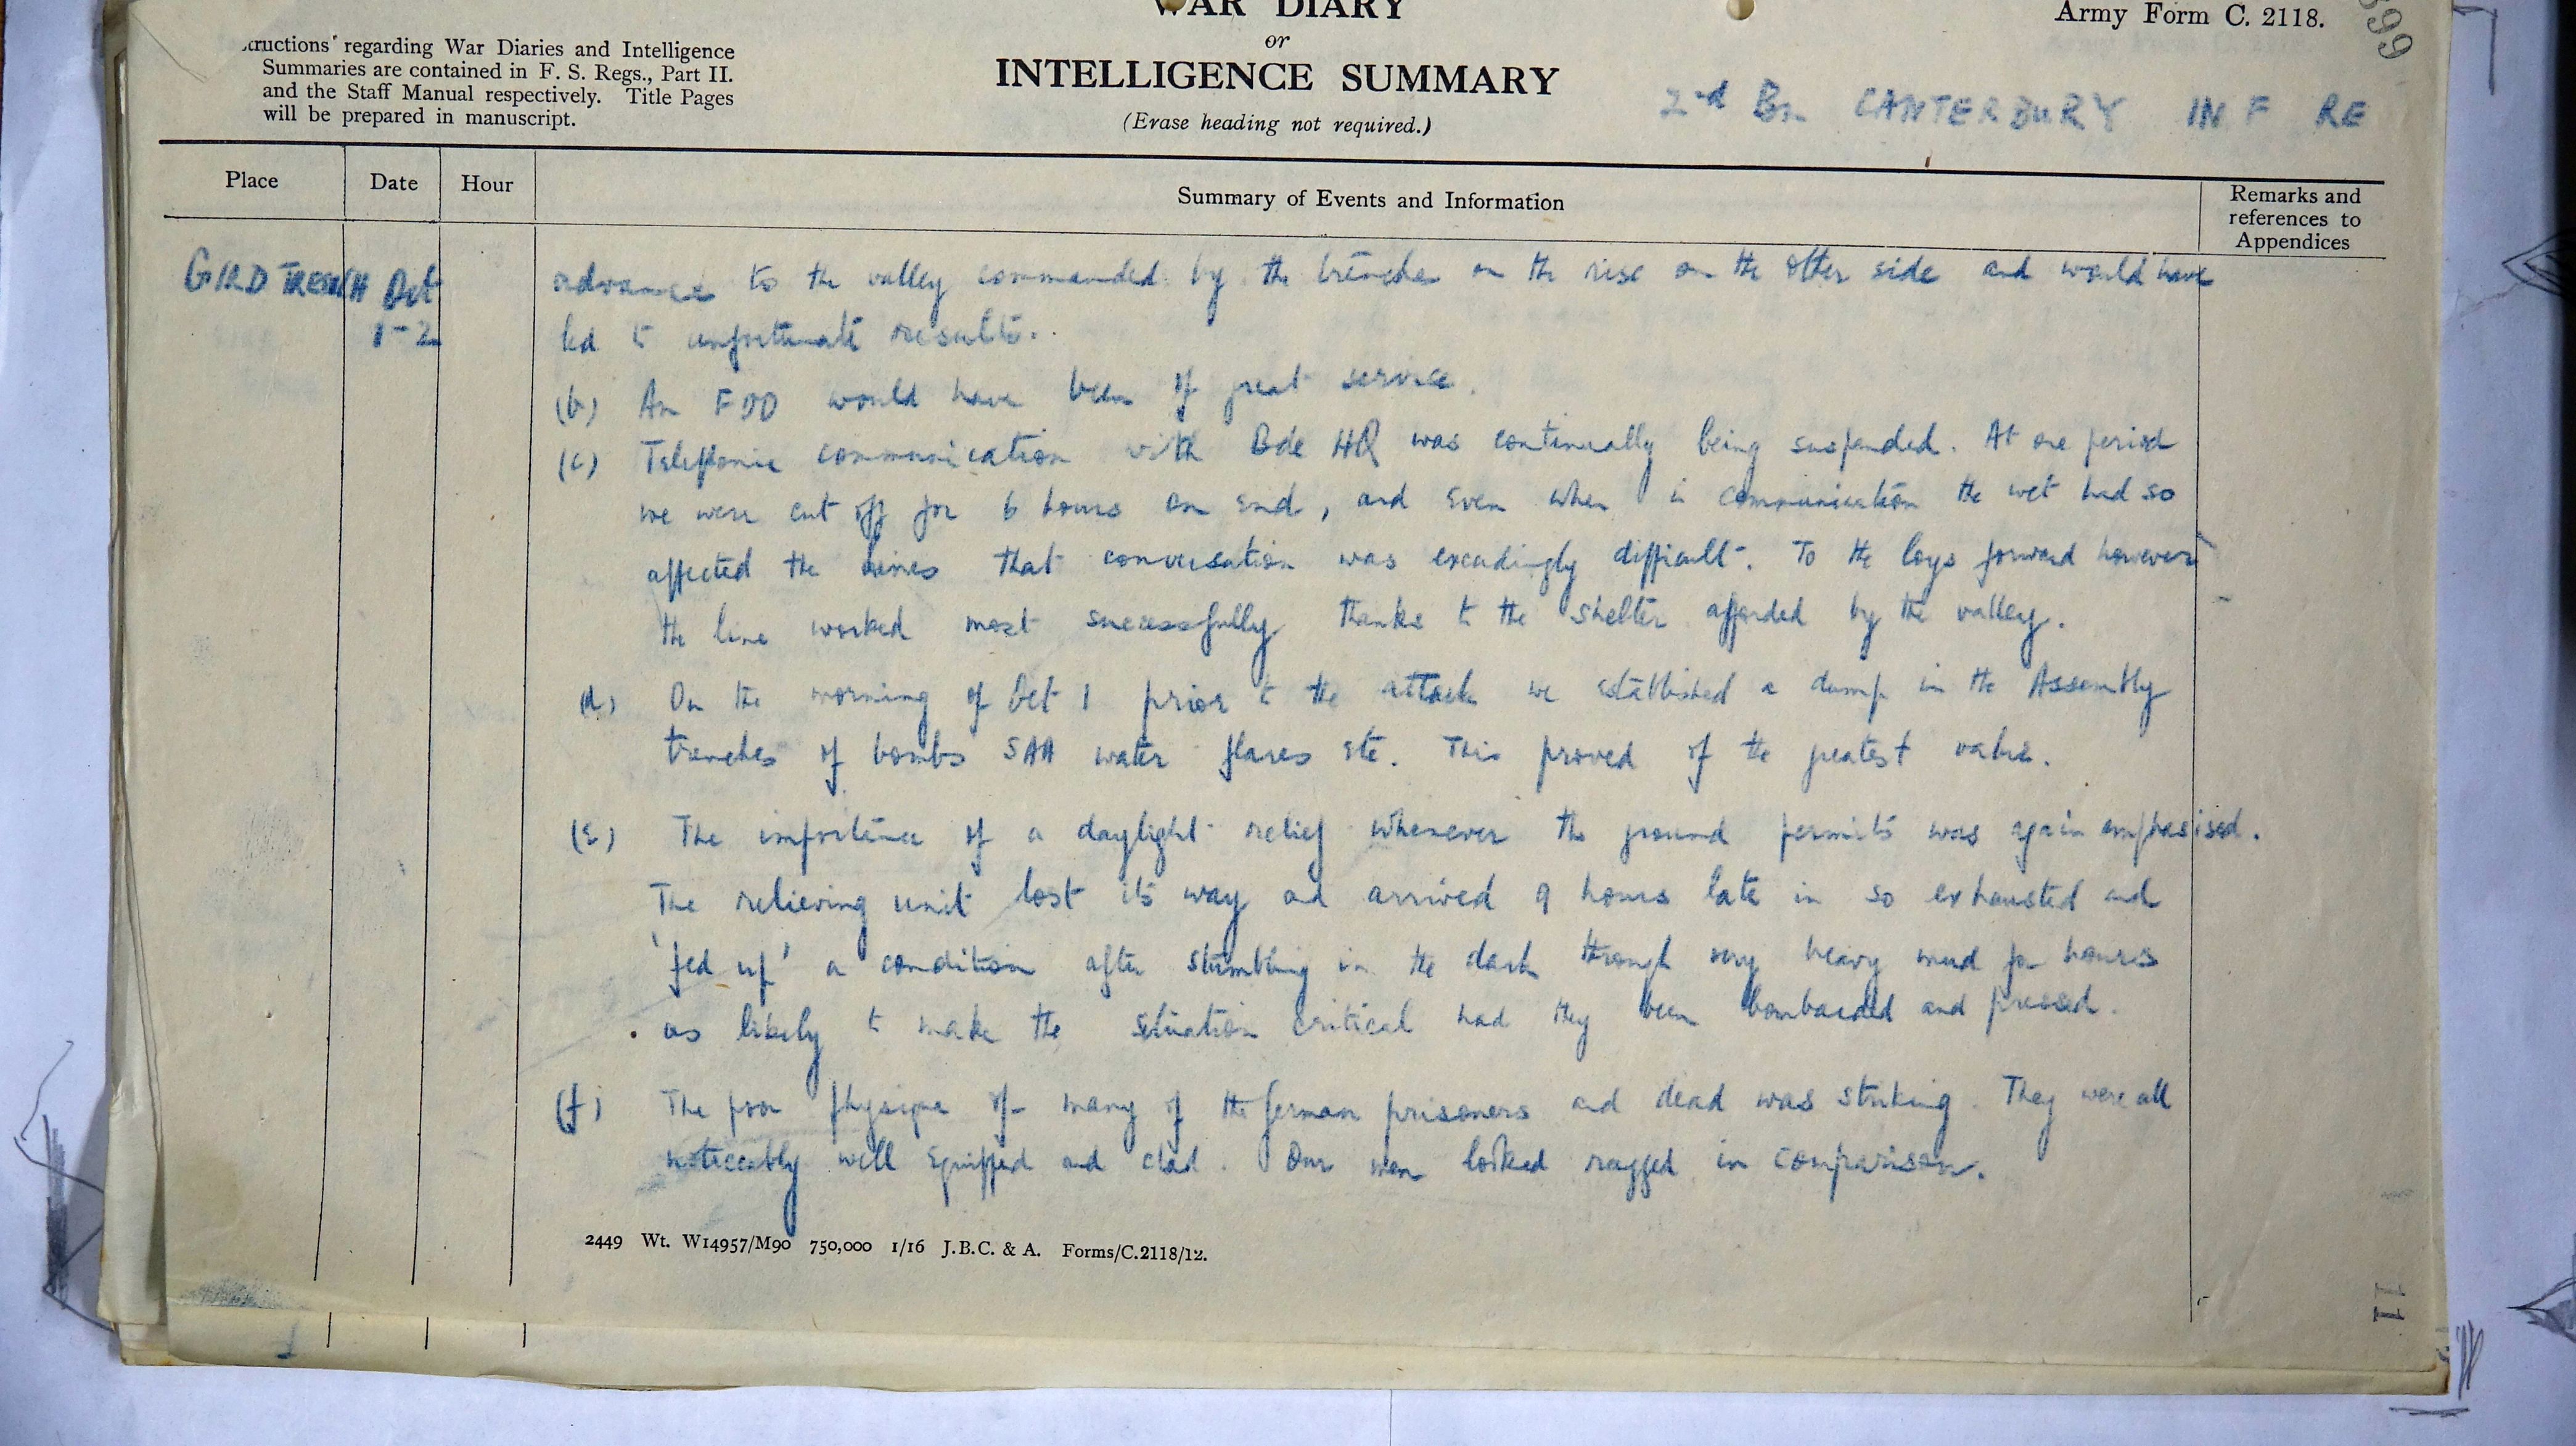 WAR DIARY
or
INTELLIGENCE SUMMARY
(Erase heading not required.)
Army Form C. 2118.
399
ructions regarding War Diaries and Intelligence
Summaries are contained in F. S. Regs., Part II.
and the Staff Manual respectively. Title Pages
will be prepared in manuscript.
2nd Bn CANTERBURY INF RE
Place
Date
Hour
Summary of Events and Information
Remarks and
references to
Appendices
GIRD TRENCH
Oct
1-2
advance to the valley commanded by the trenches on the rise on the other side and would have
led to unfortunate results.
(b) An FOO would have been of great service.
(c) Telephonic communication with Bde HQ was continually being suspended. At one period
we were cut off for 6 hours on end, and even when in communication the wet had so
affected the lines that conversation was exceedingly difficult. To the Coys forward however
the line worked most successfully thanks to the shelter afforded by the valley.
(d) On the morning of Oct 1 prior to the attack we established a dump in the Assembly
trenches of bombs SAA water flares etc. This proved of the greatest value.
(e) The importance of a daylight relief whenever the ground permits was again emphasised.
The relieving unit lost its way and arrived 9 hours late in so exhausted and
'fed up' a condition after stumbling in the dark through very heavy mud for hours
as likely to make the situation critical had they been bombarded and pressed.
(f) The poor physique of many of the German prisoners and dead was striking. They were all
noticeably well equipped and clad. Our men looked ragged in comparison.
2449 Wt. W14957/M90 750,000 1/16 J.B.C. & A. Forms/C.2118/12.
11